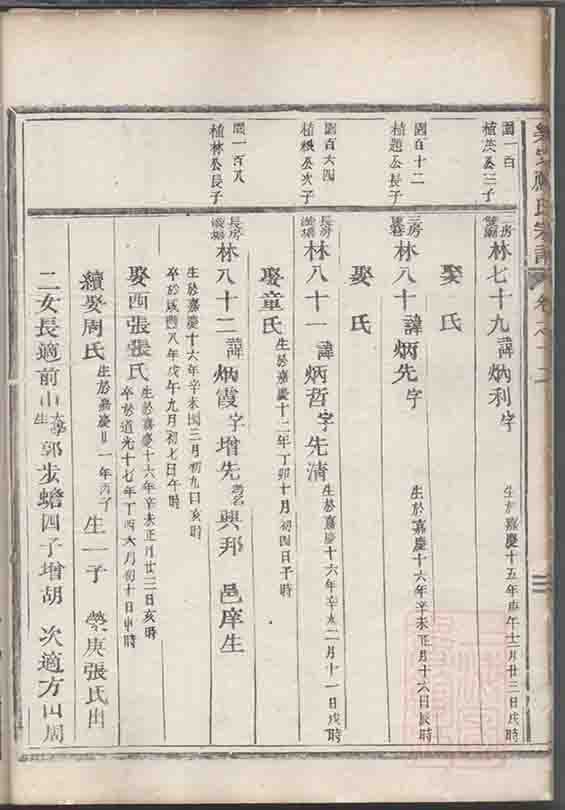 園一百
植茂公三子
二房
林七十九諱炳利字
生於嘉慶十五年庚午十二月廿三日戌時
娶氏
園百十二
植題公長子
二房
林八十諱炳先字
生於嘉慶十六年辛未正月十六日辰時
娶氏
園百六四
植槐公次子
長房
林八十一諱炳哲字先清
生於嘉慶十六年辛未二月十一日戌時
娶童氏
生於嘉慶十二年丁卯十月初四日子時
園一百八
植林公長子
長房
林八十二諱炳霞字增先
興邦 邑庠生
生於嘉慶十六年辛未閏三月初九日亥時
卒於咸豐八年戊午九月初七日午時
娶西張張氏
生於嘉慶十六年辛未正月廿三日亥時
卒於道光十七年丁酉六月初十日申時
續娶周氏
生於嘉慶二一年丙子
生一子 榮庚張氏出
二女長適前山太學生郭步蟾四子增胡 次適方山周